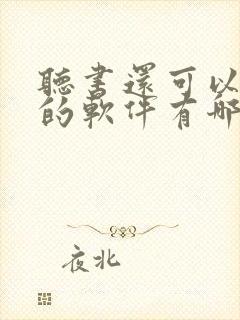 聽書還可以
的軟件有哪
夜北